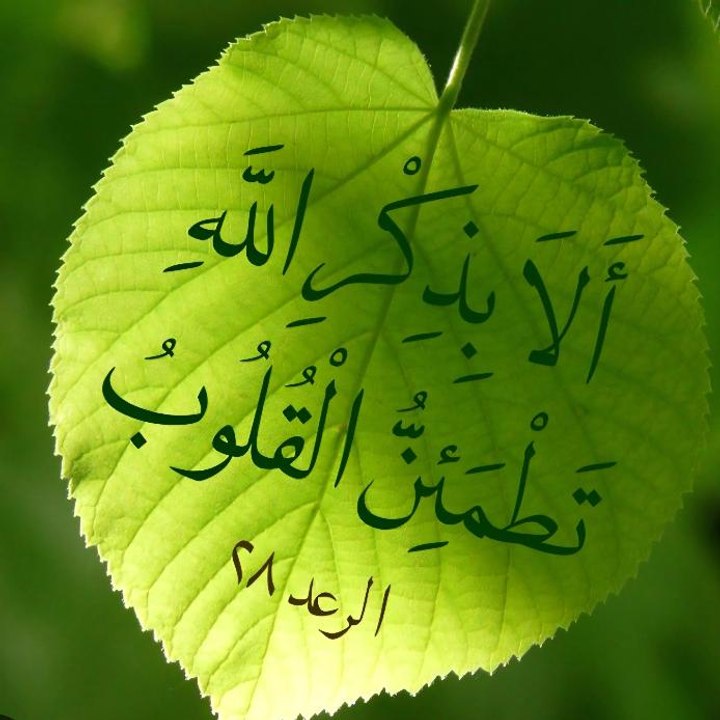 أَلَا بِذِكْرِ اللَّهِ
تَطْمَئِنُّ الْقُلُوبُ
الرعد ٢٨